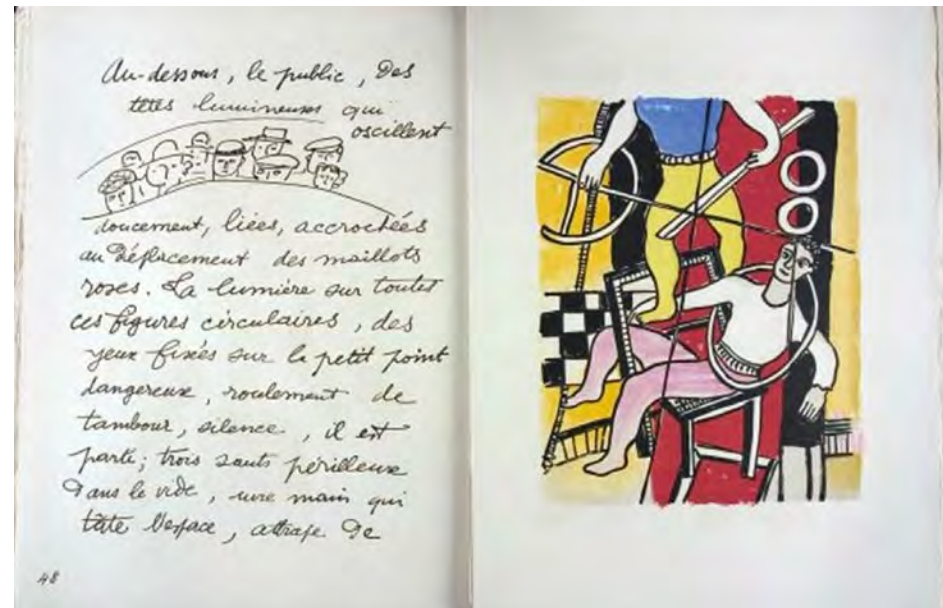 Au-dessous, le public, des
têtes lumineuses qui
oscillent
doucement, liées, accrochées
au déplacement des maillots
roses. La lumière sur toutes
ces figures circulaires, des
yeux fixés sur le petit point
dangereux, roulement de
tambour, silence, il est
parti; trois sauts périlleux
dans le vide, une main qui
tâte l'espace, attrape de
48